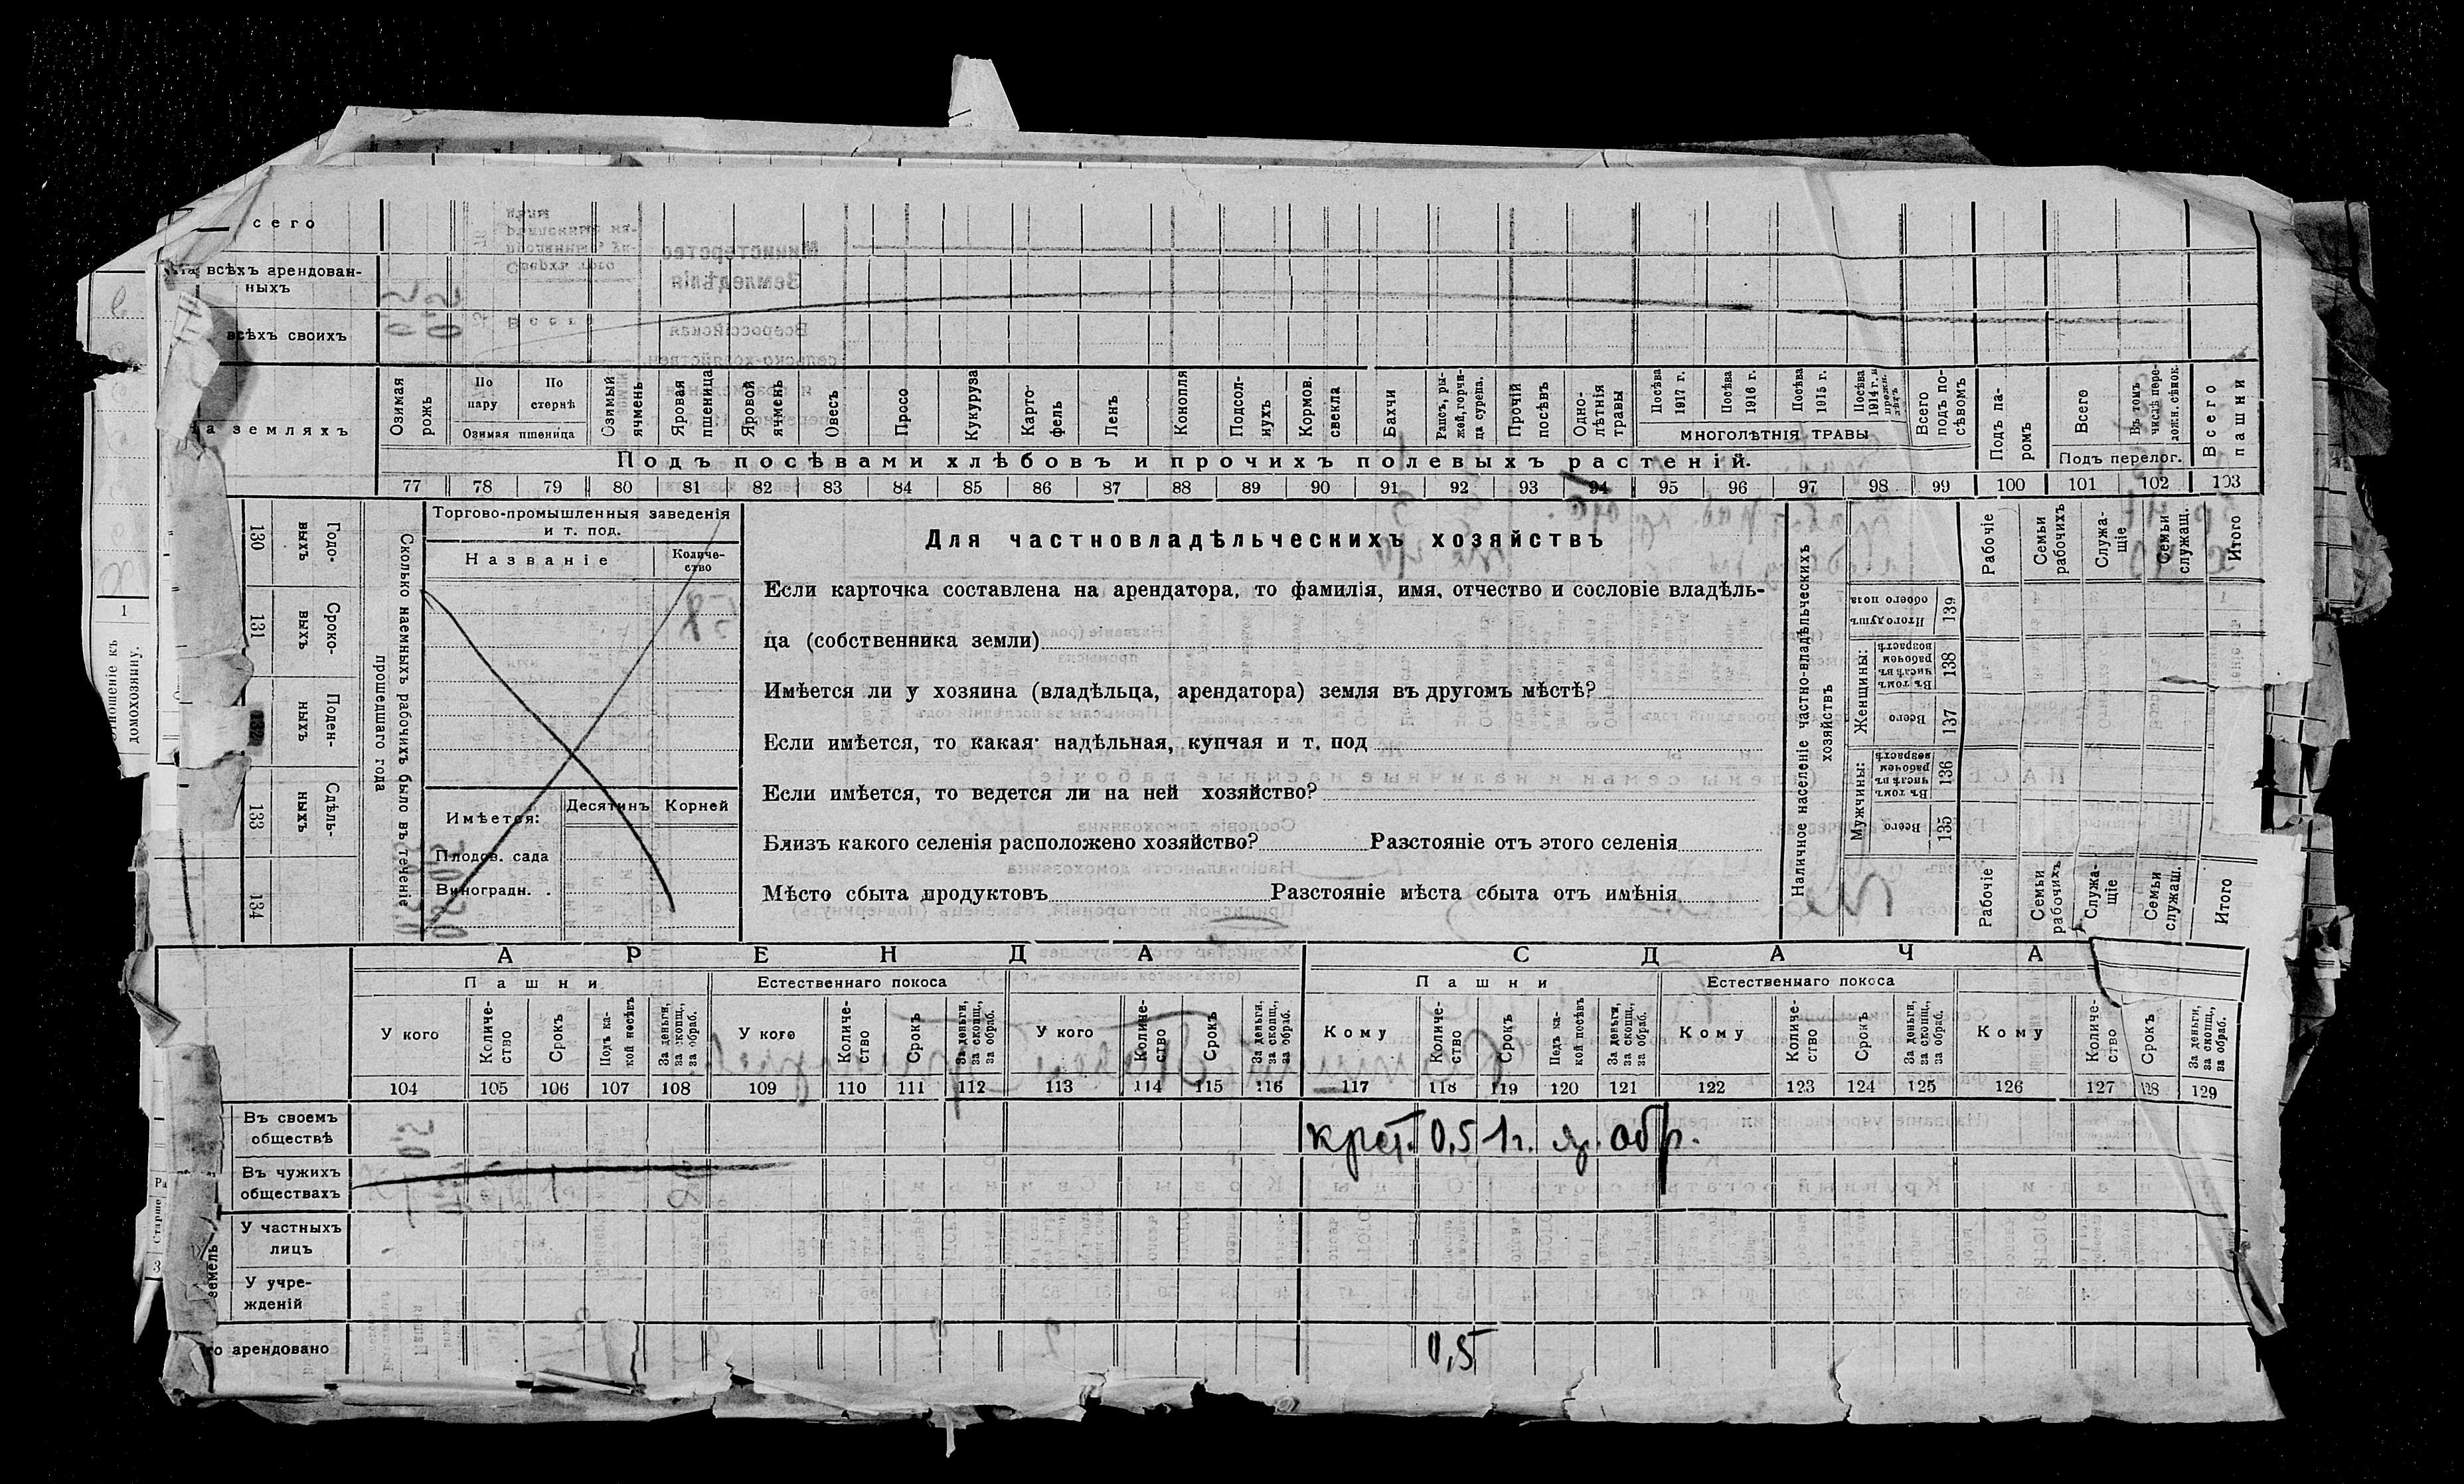 сего
всѣхъ арендован-
ныхъ
всѣхъ своихъ
земляхъ
Озимая рожь
По пару
По стернѣ
Озимая пшеница
Озимый ячмень
Яровая пшеница
Яровой ячмень
Овесъ
Просо
Кукуруза
Карто-
фель
Ленъ
Конопля
Подсол-
нухъ
Кормов. свекла
Бахчи
Рапсъ, ры-
жей, горчи-
ца сурепа.
Прочій посѣвъ
Одно-
лѣтнія травы
Посѣва 1917 г.
Посѣва 1916 г.
Посѣва 1915 г.
Посѣва 1914 г. и
МНОГОЛѢТНІЯ ТРАВЫ
Всего подъ по-
сѣвомъ
Подъ па-
ромъ
Всего
Въ томъ числѣ пере-
лож. сѣнок.
Подъ перелог.
Всего пашни
Подъ посѣвами хлѣбовъ и прочихъ полевыхъ растеній.
77 78 79 80 81 82 83 84 85 86 87 88 89 90 91 92 93 94 95 96 97 98 99 100 101 102 103
130 Годо-
выхъ
131 Сроко-
выхъ
Поден-
ныхъ
133 Сдѣль-
ныхъ
134
Сколько наемныхъ рабочихъ было въ теченіе
прошедшаго года
Торгово-промышленныя заведенія
и т. под.
Названіе
Количе-
ство
Имѣется:
Десятинъ
Корней
Плодов. сада
Виноградн. .
Для частновладѣльческихъ хозяйствъ
Если карточка составлена на арендатора, то фамилія, имя, отчество и сословіе владѣль-
ца (собственника земли)
Имѣется ли у хозяина (владѣльца, арендатора) земля въ другомъ мѣстѣ?
Если имѣется, то какая: надѣльная, купчая и т. под
Если имѣется, то ведется ли на ней хозяйство?
Близъ какого селенія расположено хозяйство? Разстояніе отъ этого селенія
Мѣсто сбыта продуктовъ Разстояніе мѣста сбыта отъ имѣнія
Наличное населеніе частно-владѣльческихъ
хозяйствъ
Рабочіе
Семьи рабочихъ
Служа-
щіе
Семьи служащ.
Итого
Итого душъ обоего пола 139
Женщины:
Въ томъ числѣ въ рабочемъ возрастѣ 138
Всего 137
Мужчины:
Въ томъ числѣ въ рабочемъ возрастѣ 136
Всего 135
Рабочіе
Семьи рабочихъ
Служа-
щіе
Семьи служащ.
Итого
АРЕНДА
СДАЧА
Пашни
Естественнаго покоса
Пашни
Естественнаго покоса
У кого
Количе-
ство
Срокъ
Подъ ка-
кой посѣвъ
За деньги,
за скопщ.,
за обраб.
У кого
Количе-
ство
Срокъ
За деньги,
за скопщ.,
за обраб.
У кого
Количе-
ство
Срокъ
За деньги,
за скопщ.,
за обраб.
Кому
Количе-
ство
Срокъ
Подъ ка-
кой посѣвъ
За деньги,
за скопщ.,
за обраб.
Кому
Количе-
ство
Срокъ
За деньги,
за скопщ.,
за обраб.
Кому
Количе-
ство
Срокъ
За деньги,
за скопщ.,
за обраб.
104 105 106 107 108 109 110 111 112 113 114 115 116 117 118 119 120 121 122 123 124 125 126 127 128 129
Въ своемъ
обществѣ
крест. 0,5 1г. обр.
Въ чужихъ
обществахъ
У частныхъ
лицъ
земель
У учре-
жденій
арендовано
0,5
1
домохозяину.